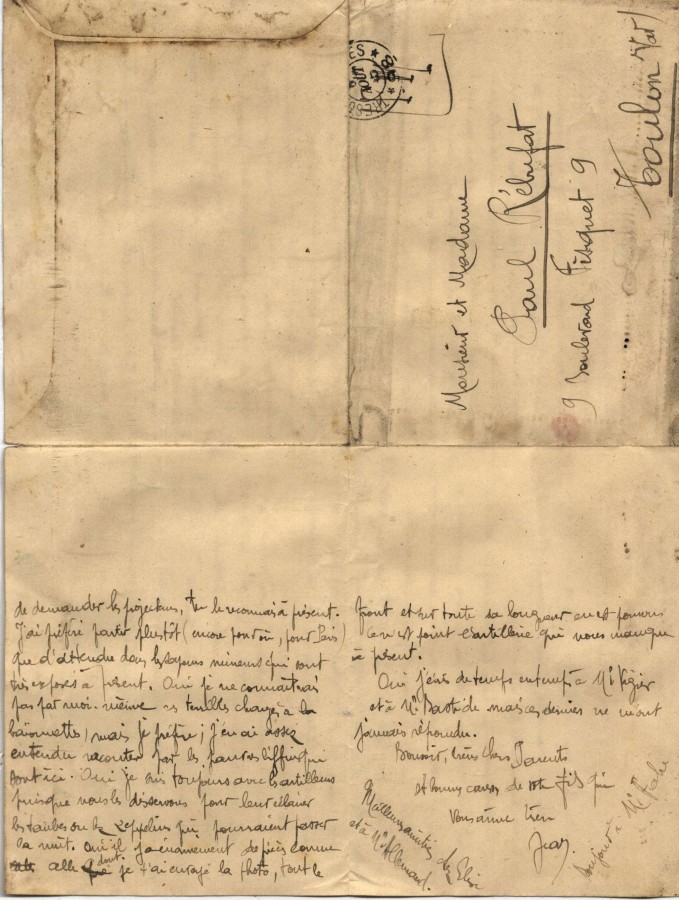 Monsieur et Madame
Paul Rébufat
9 Boulevard Fisquet 9
Toulon (Var)
de demander les projecteurs, tu le reconnais à présent.
J'ai préféré partir plustôt (encore pour où, pour Paris)
que d'attendre dans les sapeurs mineurs qui sont
très exposés à présent. Oui je ne connaîtrais
pas par moi-même ces terribles charges à la
baïonnettes, mais je préfère; j'en ai assez
entendu raconter par les pauvres biffins qui
sont ici. Oui je suis toujours avec les artilleurs
puisque nous les desservons pour leur éclairer
les taubes ou les zeppelins qui pourraient passer
la nuit. Oui il y a énormément de pièces comme
celle dont je t'ai envoyé la photo, tout le
front et sur toute sa longueur en est pourvu
ce n'est point l'artillerie qui nous manque
à présent.
Oui j'écris de temps en temps à Mr Vigier
et à Mr mais ces derniers ne m'ont
jamais répondu.
Bonsoir, biens chers Parents
et bonnes caresses de votre fils qui
vous aime bien
Jean
Meilleurs amitiés chez Elise
et à Mr Allemand.
bonjour à Mr